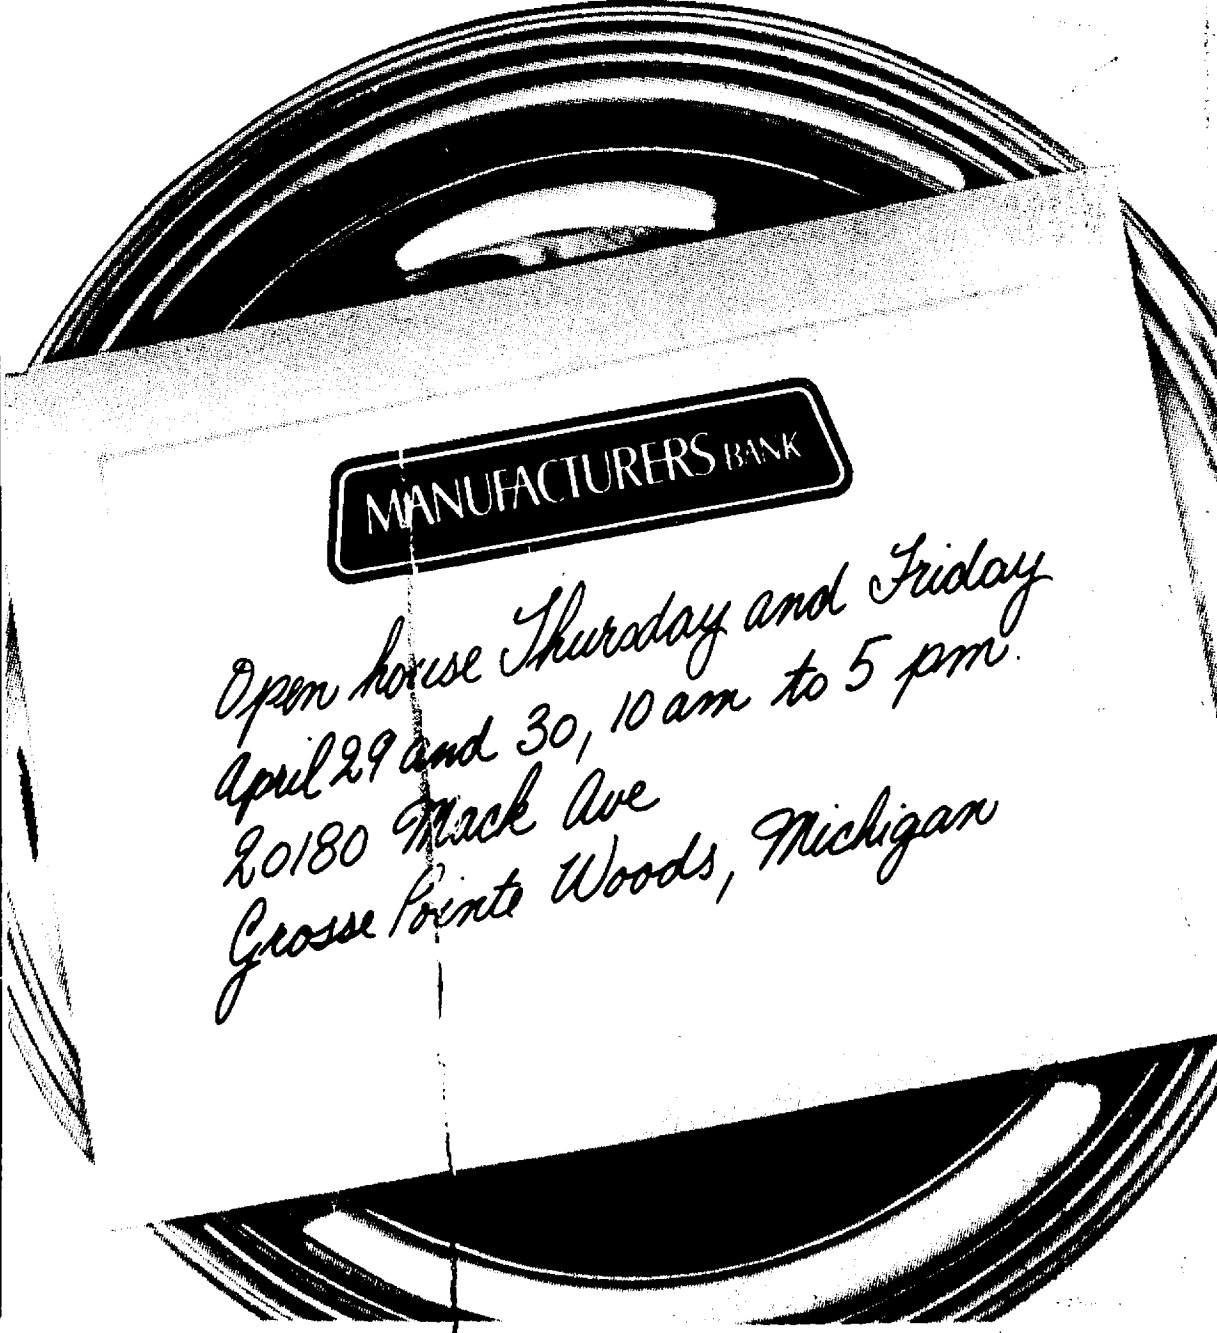 MANUFACTURERS BANK
Open house Thursday and Friday
April 29 and 30, 10 am to 5 pm.
20180 Mack Ave
Grosse Pointe Woods, Michigan